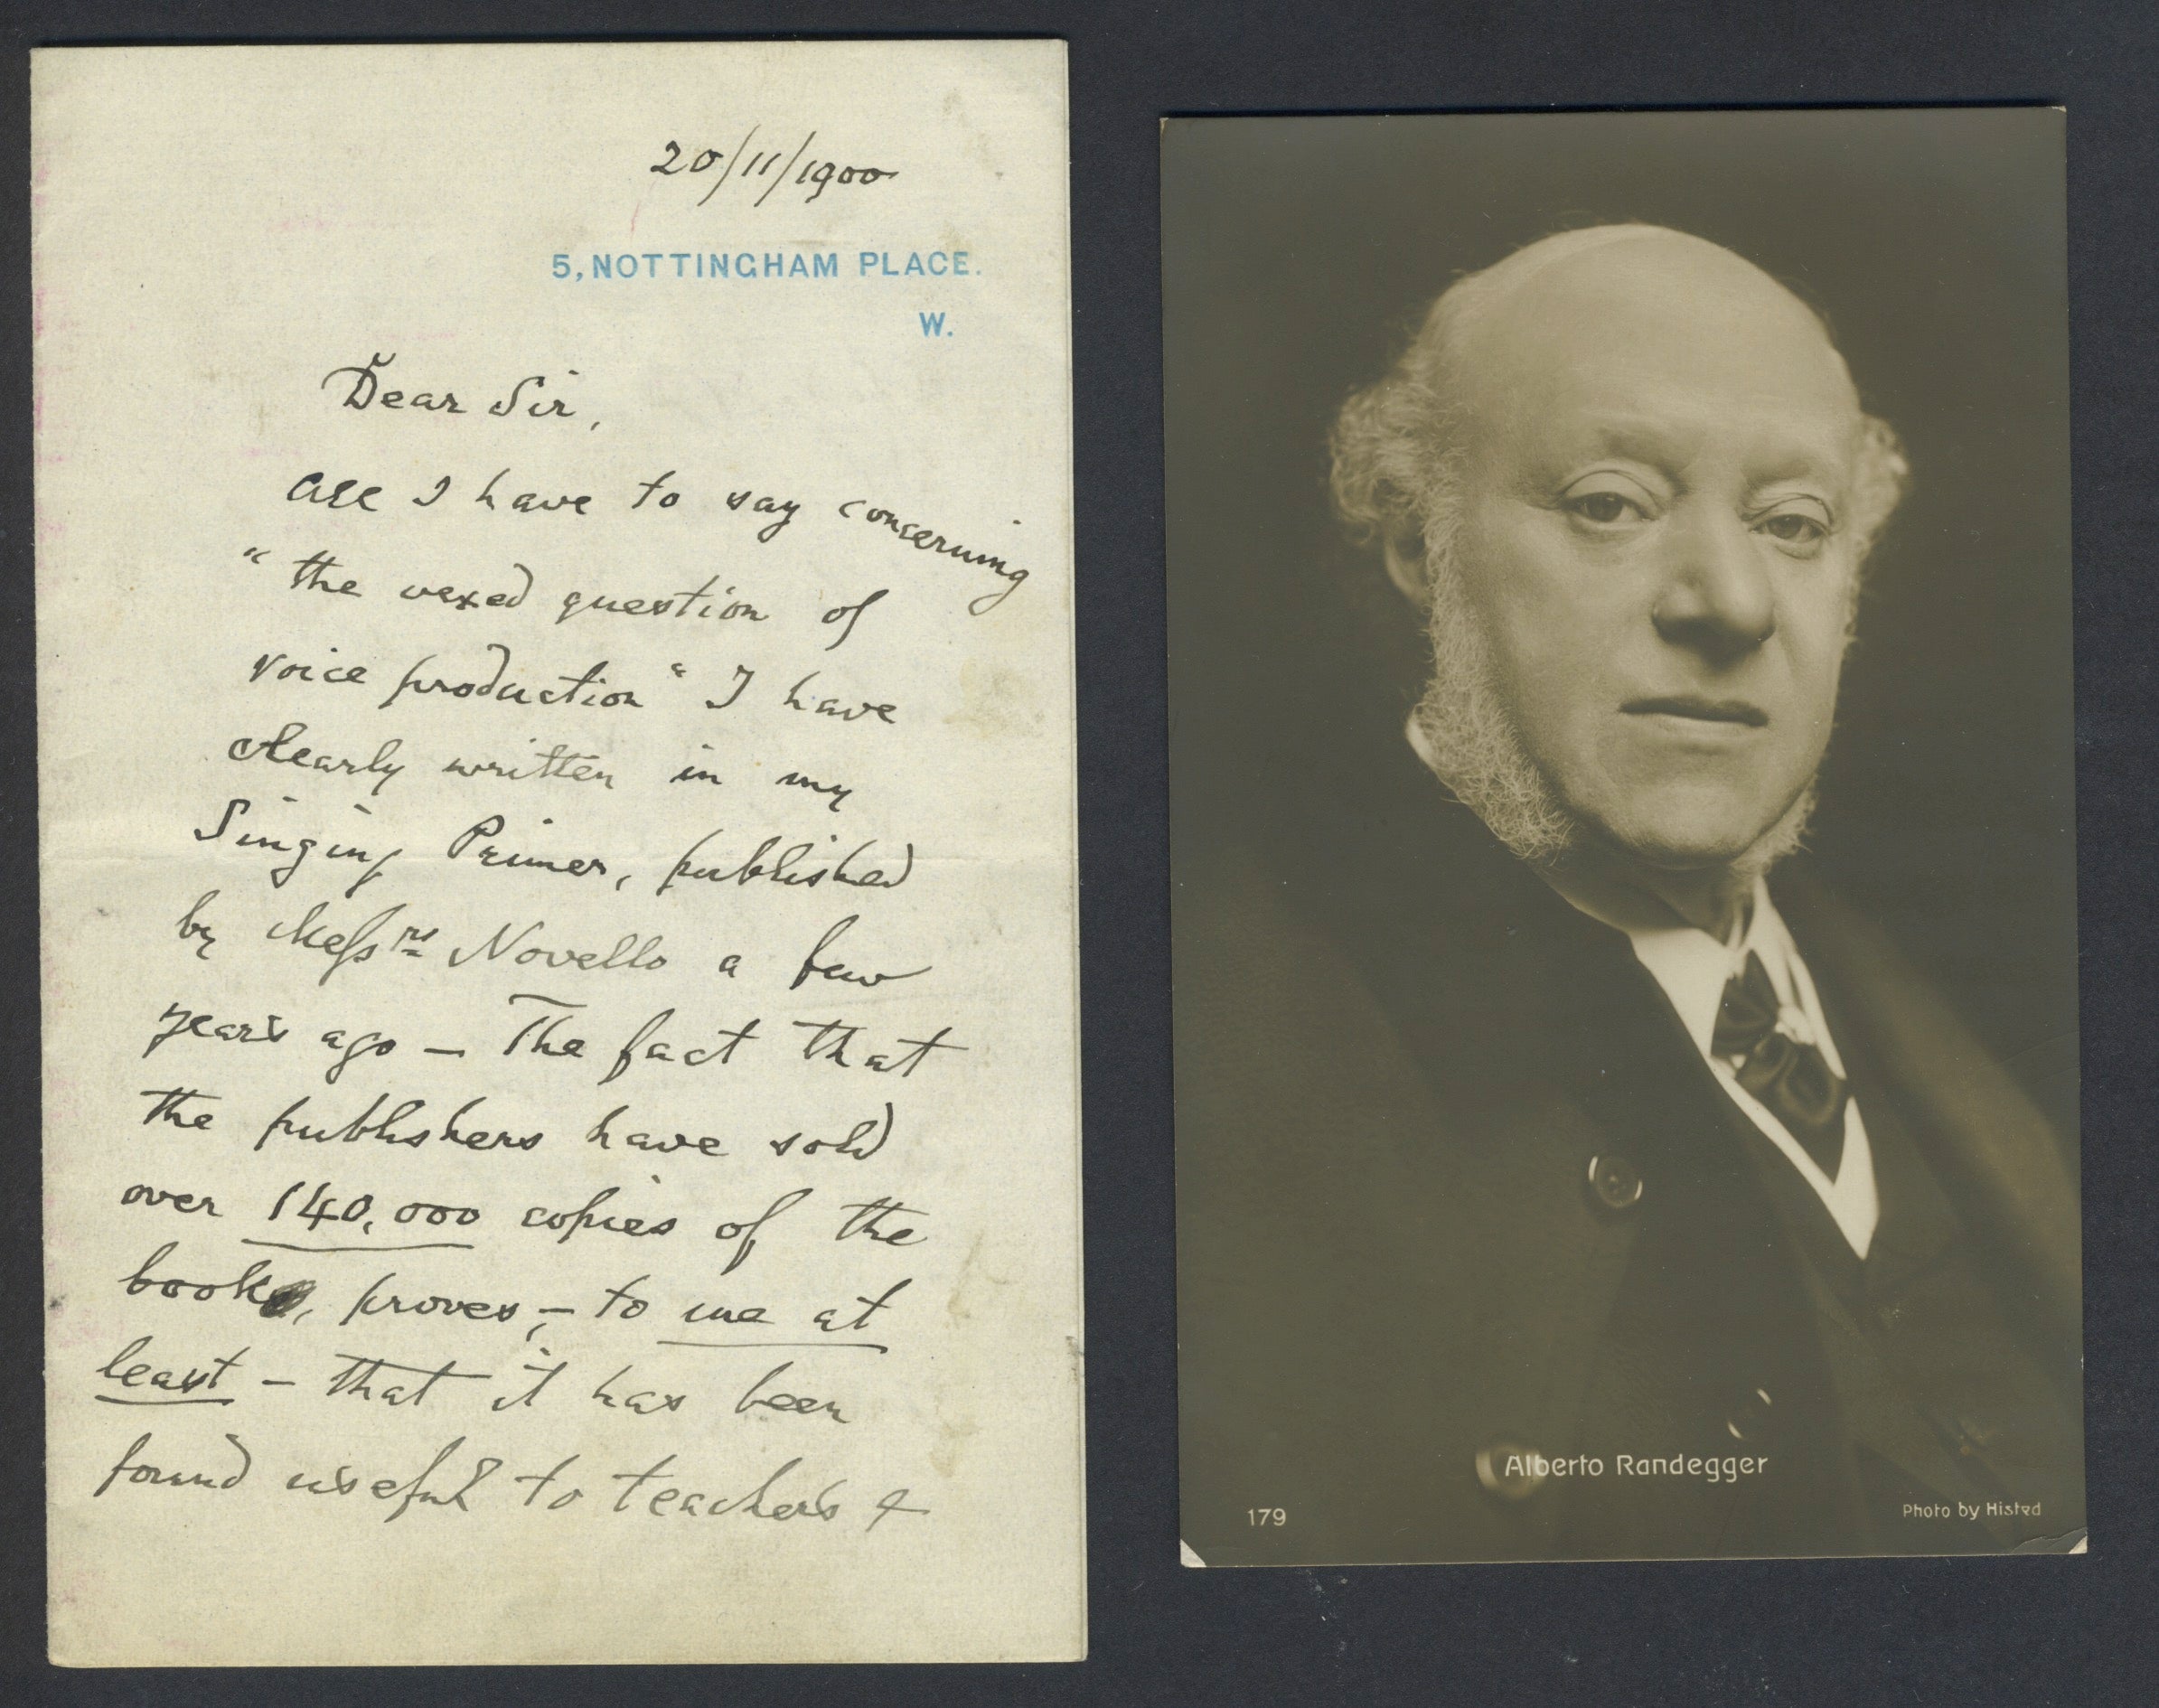 20/11/1900
5, NOTTINGHAM PLACE.
W.
Dear Sir,
All I have to say concerning
"the vexed question of
voice production" I have
clearly written in my
Singing Primer, published
by Messrs Novello a few
years ago – The fact that
the publishers have sold
over 140,000 copies of the
book, proves, – to me at
least – that it has been
found useful to teachers &
Alberto Randegger
179
Photo by Histed